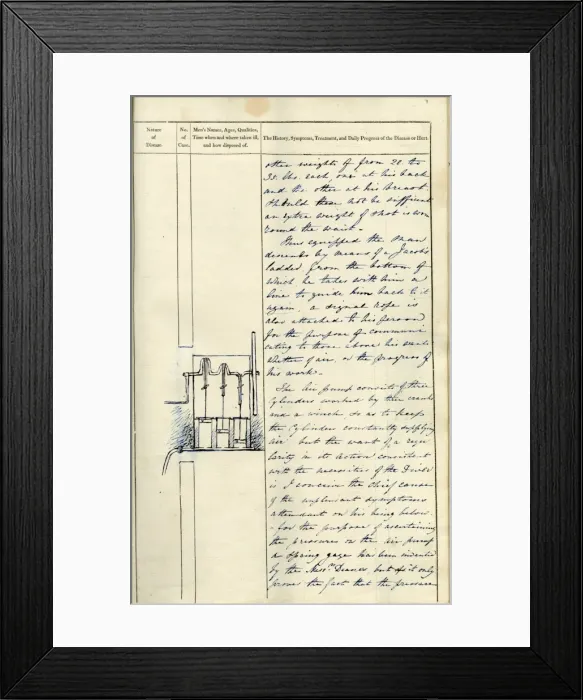 Nature
of
Disease.
No.
of
Case.
Men's Names, Ages, Qualities,
Time when and where taken ill,
and how disposed of.
The History, Symptoms, Treatment, and Daily Progress of the Disease or Hurt.
other weights of from 20 to
35 lbs. each, one at his back
and the other at his breast
Should these not be sufficient
an extra weight of shot is
round the waist -
Thus equipped the man
descends by means of a Jacob's
ladder from the bottom of
which he takes with him a
line to guide him back to it
again. a signal rope is
also attached to his person
for the purpose of communi
cating to those above his wants
whether of air, or the progress of
his work -
The Air pump consists of three
Cylinders worked by three cranks
and a winch so as to keep
the Cylinders constantly supplying
air but the want of a regu
larity in its action consistent
with the necessities of the Diver
is I conceive the chief cause
of the unpleasant symptoms
attendant on his being below
- for the purpose of ascertaining
the pressure on the air pump
a spring gage has been invented
by the Messrs Deanes but as it only
proves the fact that the pressure